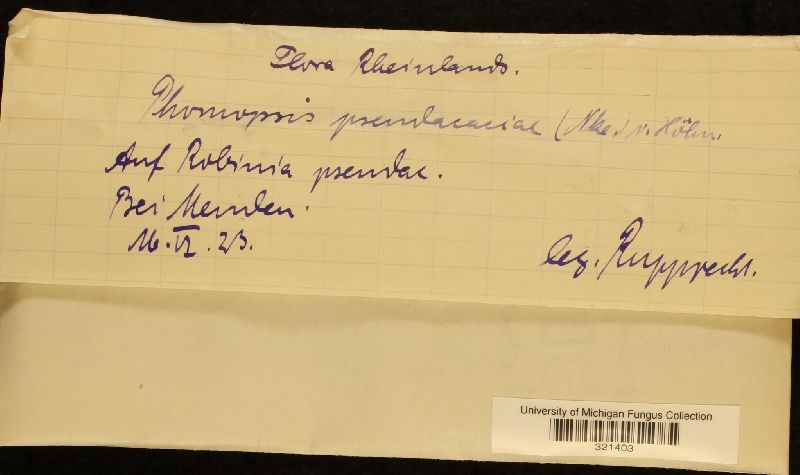 Flora Rheinlands.
Phomopsis pseudacaciae (Nke.) v. Höhn.
Auf Robinia pseudac.
Bei Menden.
16. VI. 23.
leg. Rupprecht.
University of Michigan Fungus Collection
321403